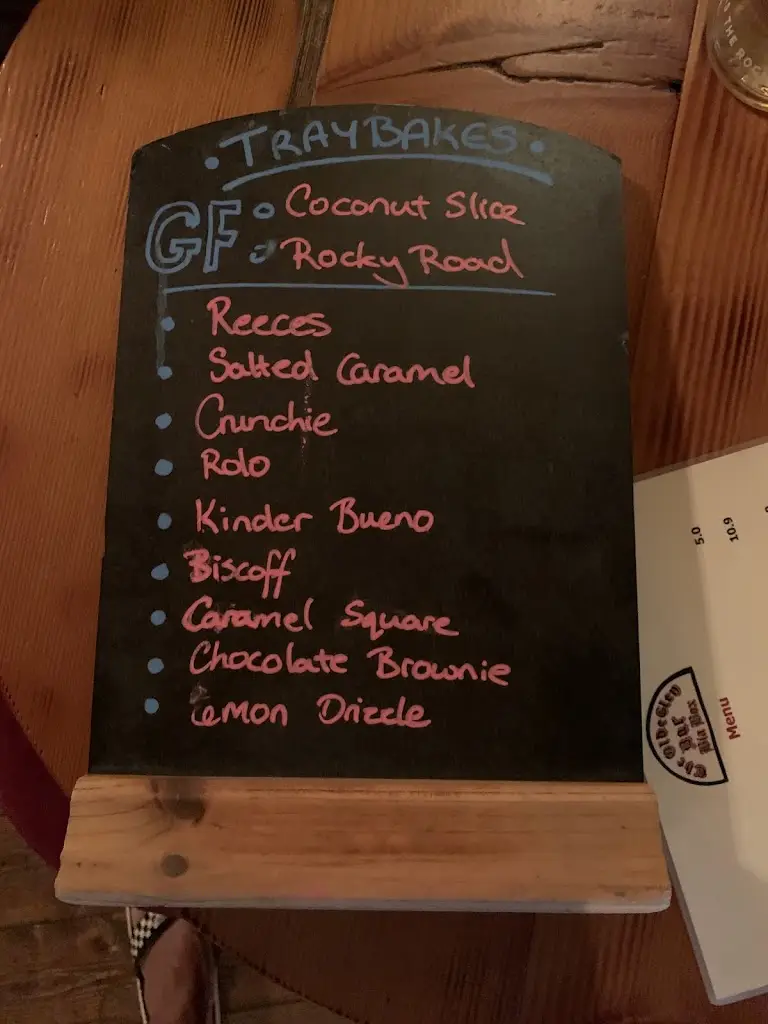 • TRAYBAKES •
GF: Coconut Slice
Rocky Road
• Reeces
• Salted Caramel
• Crunchie
• Rolo
• Kinder Bueno
• Biscoff
• Caramel Square
• Chocolate Brownie
• Lemon Drizzle
5.0
10.9
The Olde Glen
Bar
Menu
THE ROC